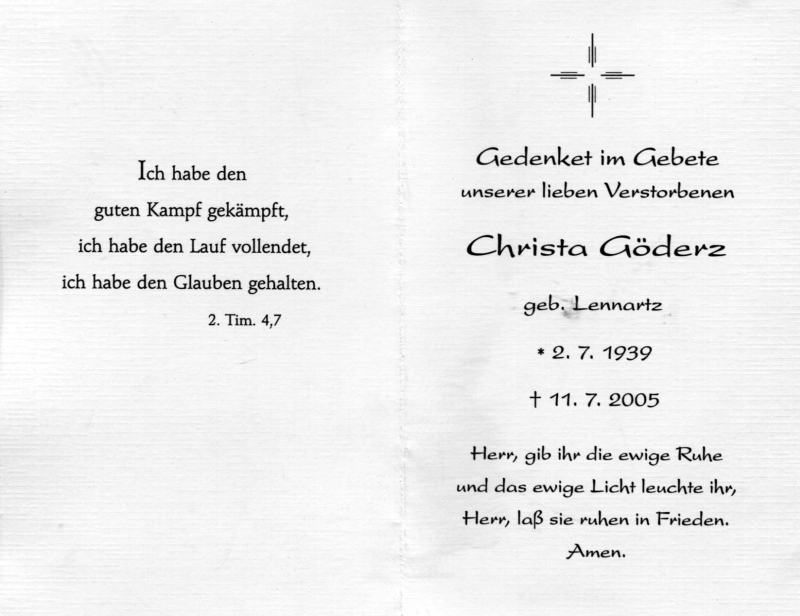 Ich habe den
guten Kampf gekämpft,
ich habe den Lauf vollendet,
ich habe den Glauben gehalten.
2. Tim. 4,7
Gedenket im Gebete
unserer lieben Verstorbenen
Christa Göderz
geb. Lennartz
* 2. 7. 1939
† 11. 7. 2005
Herr, gib ihr die ewige Ruhe
und das ewige Licht leuchte ihr,
Herr, laß sie ruhen in Frieden.
Amen.